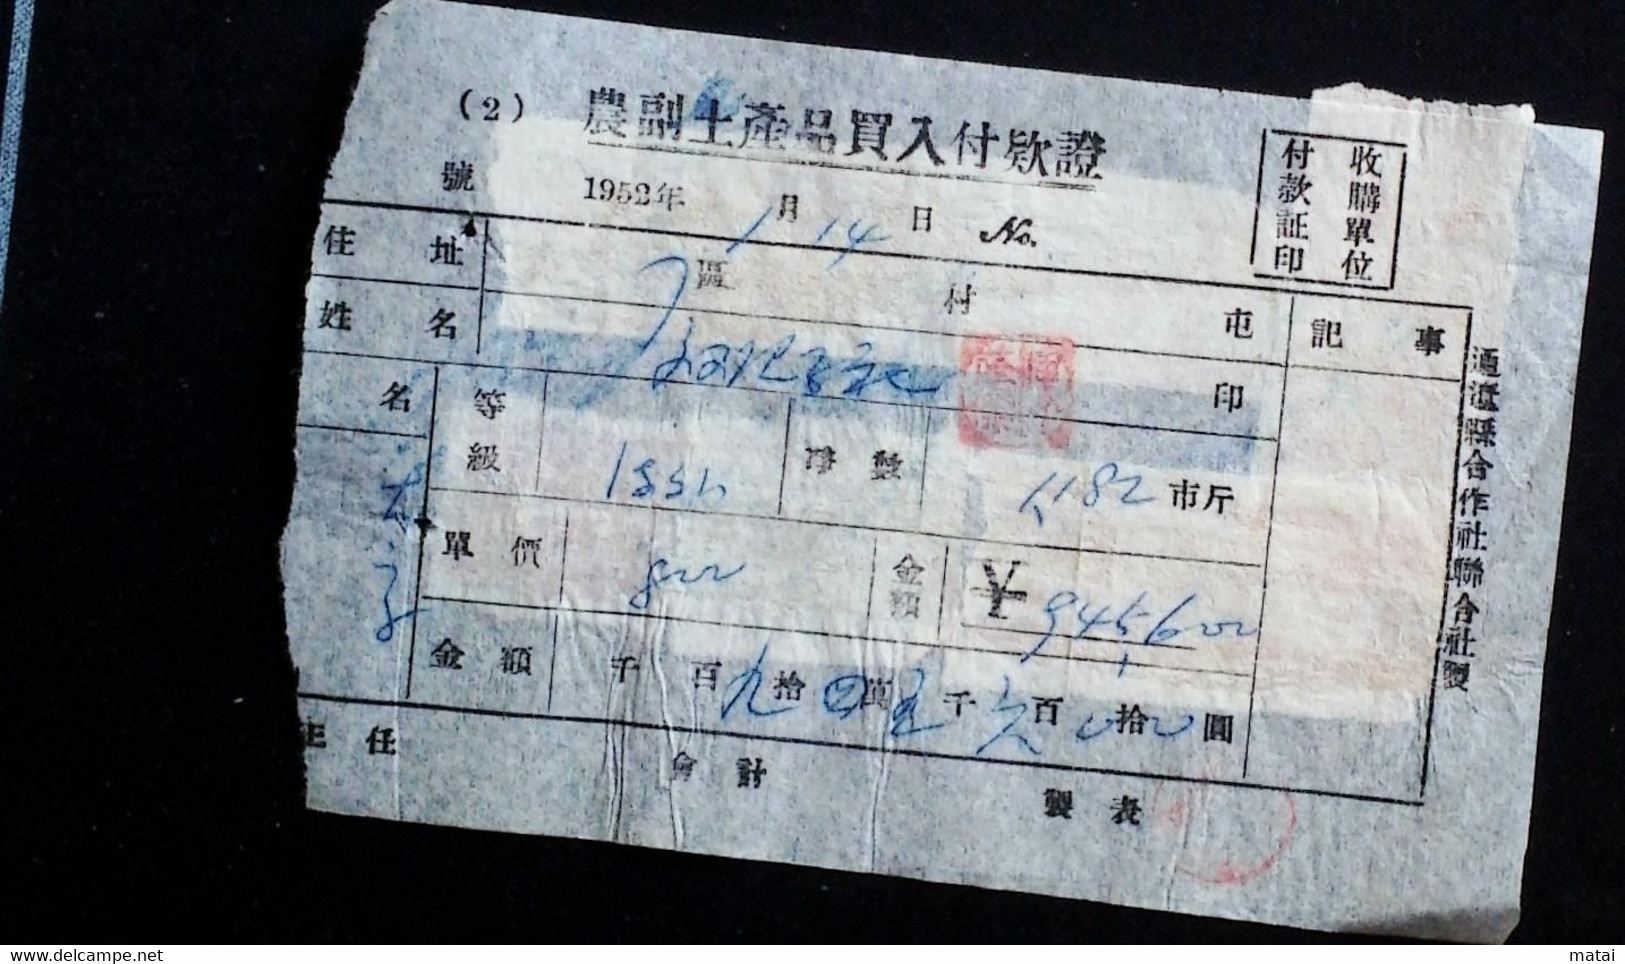 (2) 農副土產品買入付欵證
號 1952年 1月 14日 No.
付款証印
收購單位
住址 區 村 屯
記事
姓名 印
名 等級 淨數 1182 市斤
單價 800 金額 ¥ 945600
金額 千 百 九拾 四萬 五千 六百 00拾00圓
主任 會計 製表
通遼縣合作社聯合社製
www.delcampe.net
matai